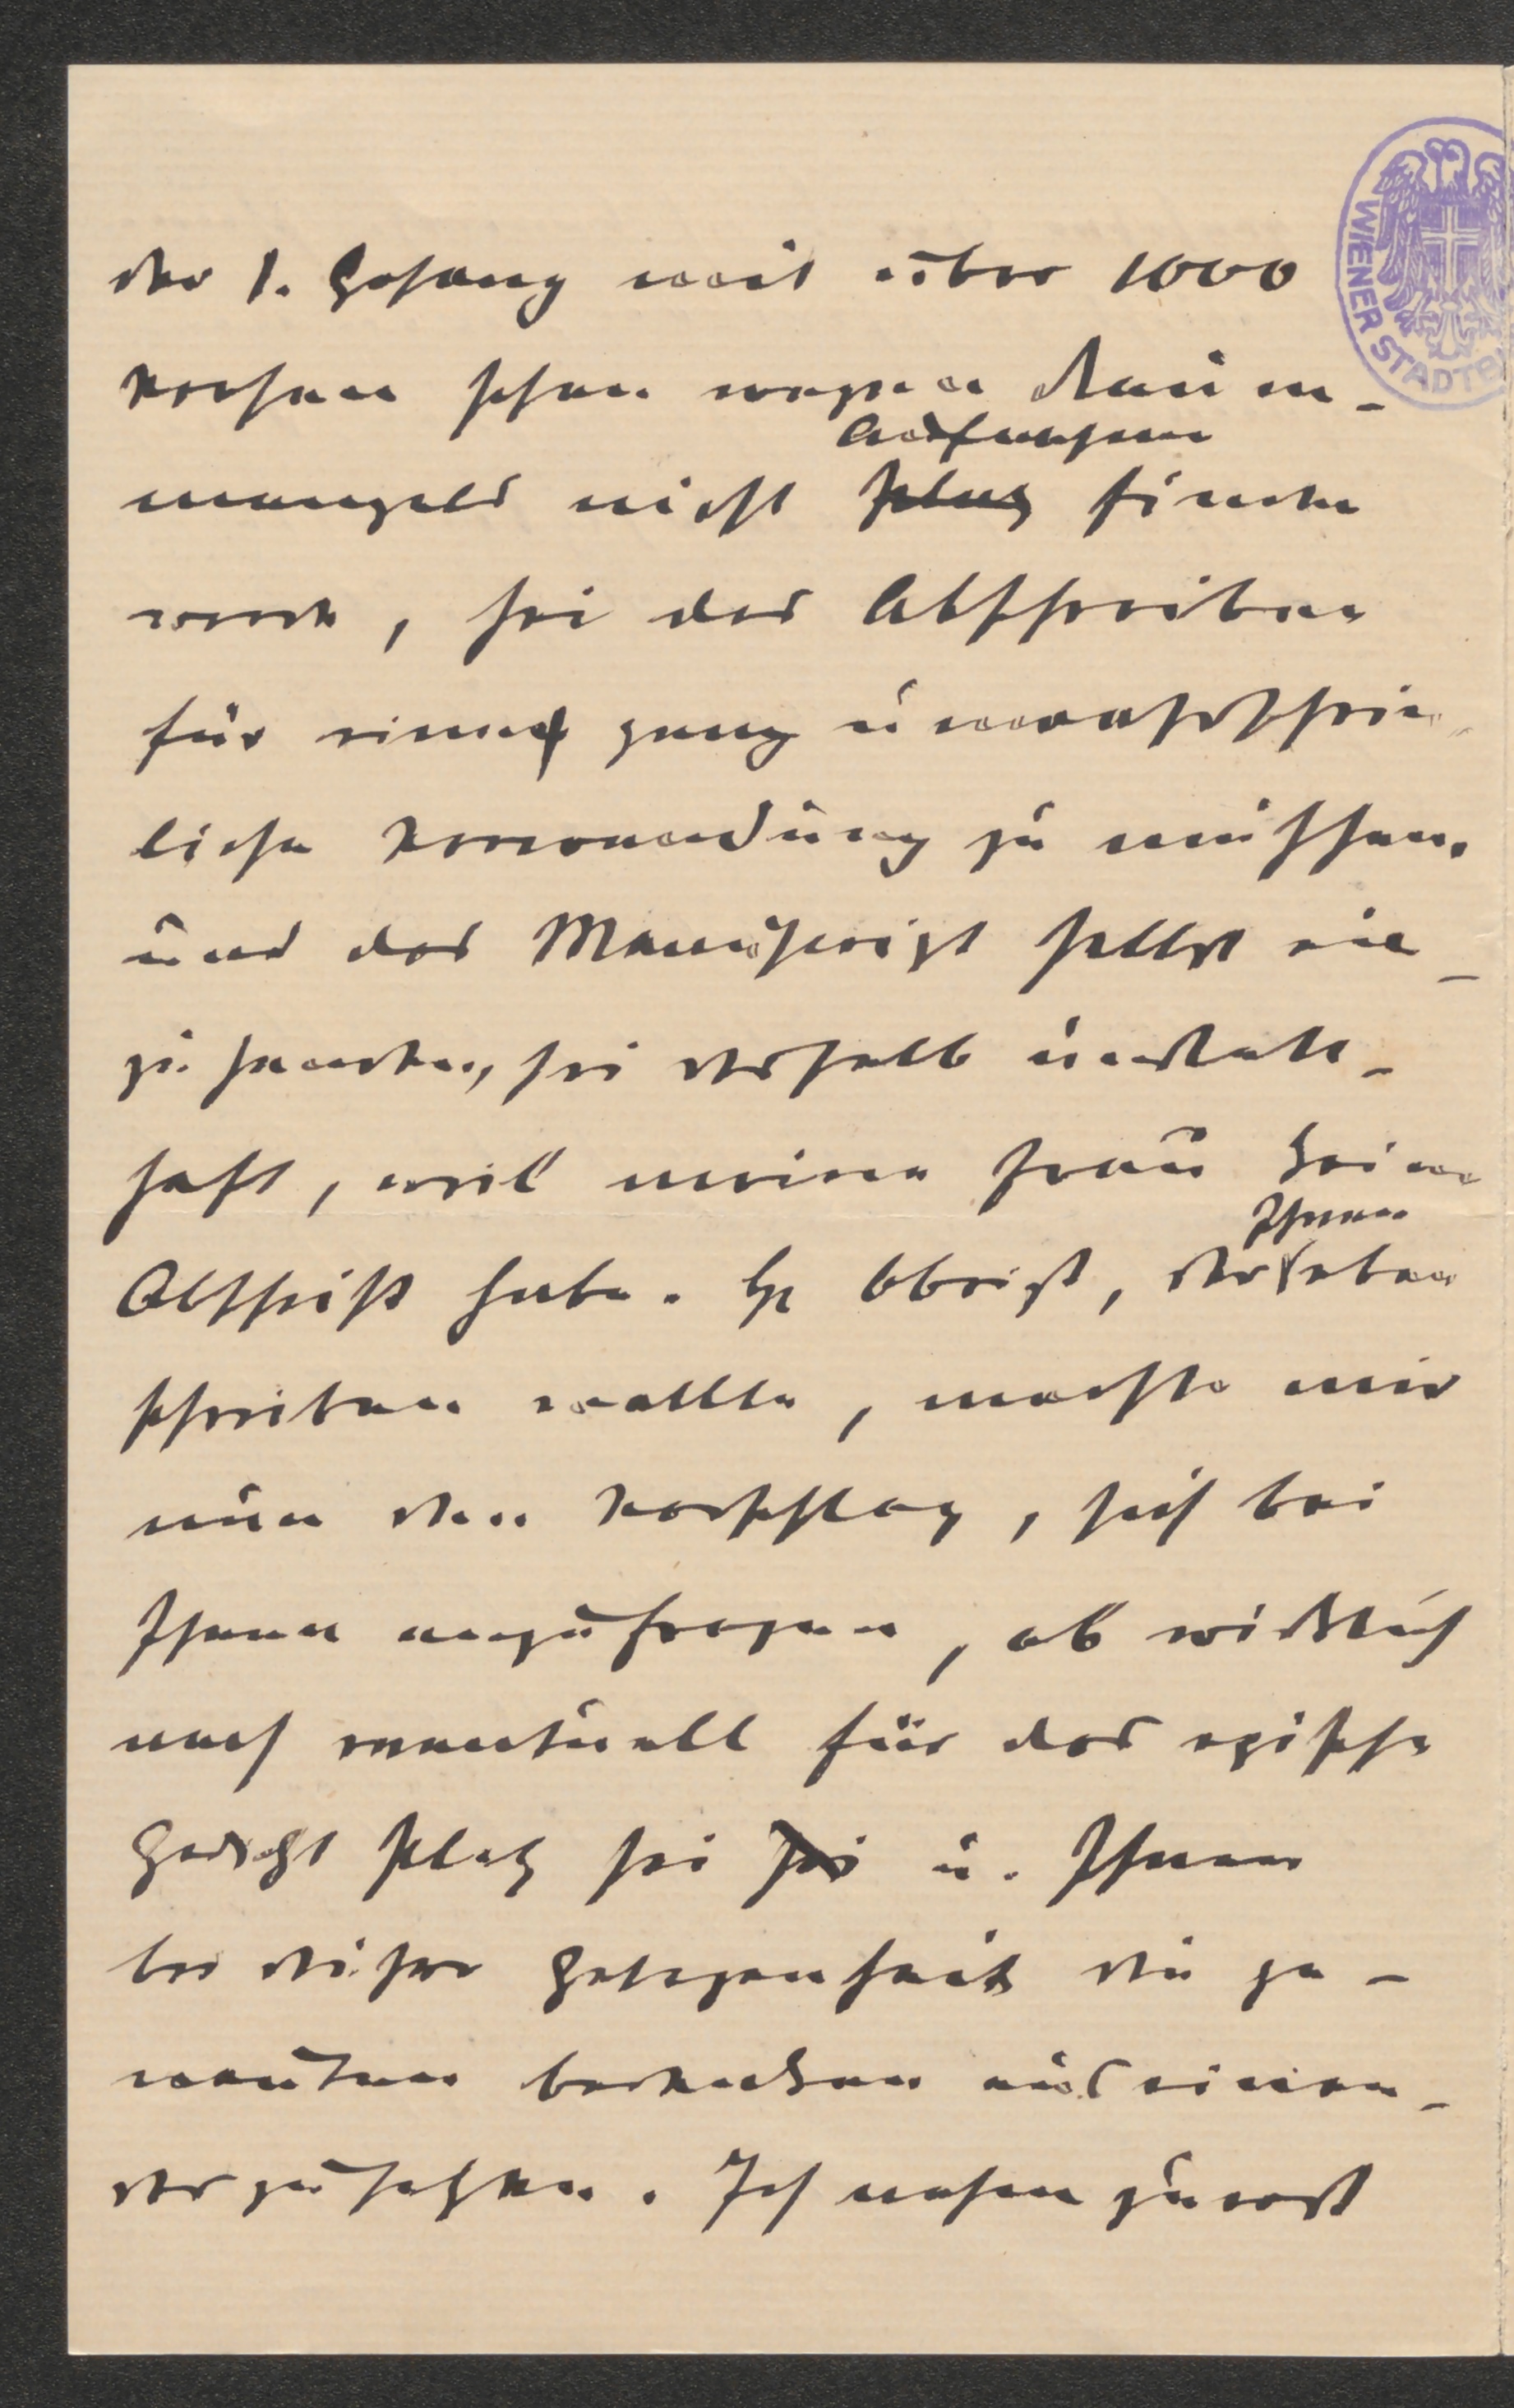 der 1. Gesang mit über 1000
Versen schon wegen Raum-
mangels nicht Platz Aufnahme finden
werde, sei das Abschreiben
für eine ganz unwahrschein-
liche Verwendung zu mühsam.
und das Manuskript selbst ein-
zusenden, sei deshalb unstatt-
haft, weil meine Frau keine
Abschrift habe. Hr Obrist, der Ihnen eben
schreiben wollte, machte mir
nun den Vorschlag, sich bei
Ihnen anzufragen, ob wirklich
noch eventuell für das epische
Gedicht Platz sei sei u. Ihnen
bei dieser Gelegenheit die ge-
nannten Bedenken auseinan-
derzusetzen. Ich nehme zuerst
WIENER STADTB